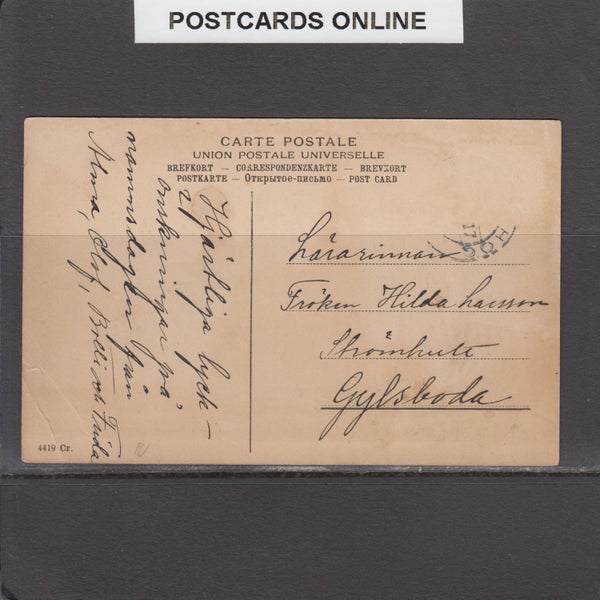 POSTCARDS ONLINE
CARTE POSTALE
UNION POSTALE UNIVERSELLE
BREFKORT — CORRESPONDENZKARTE — BREVKORT
POSTKARTE — Открытое-письмо — POST CARD
Hjärtliga lyck-
önskningar på
namnsdagen från
Alma, Olof, och Frida
HÖG
17
Lärarinnan
Fröken Hilda Larsson
Strömhult
Gylsboda
4419 Cr.